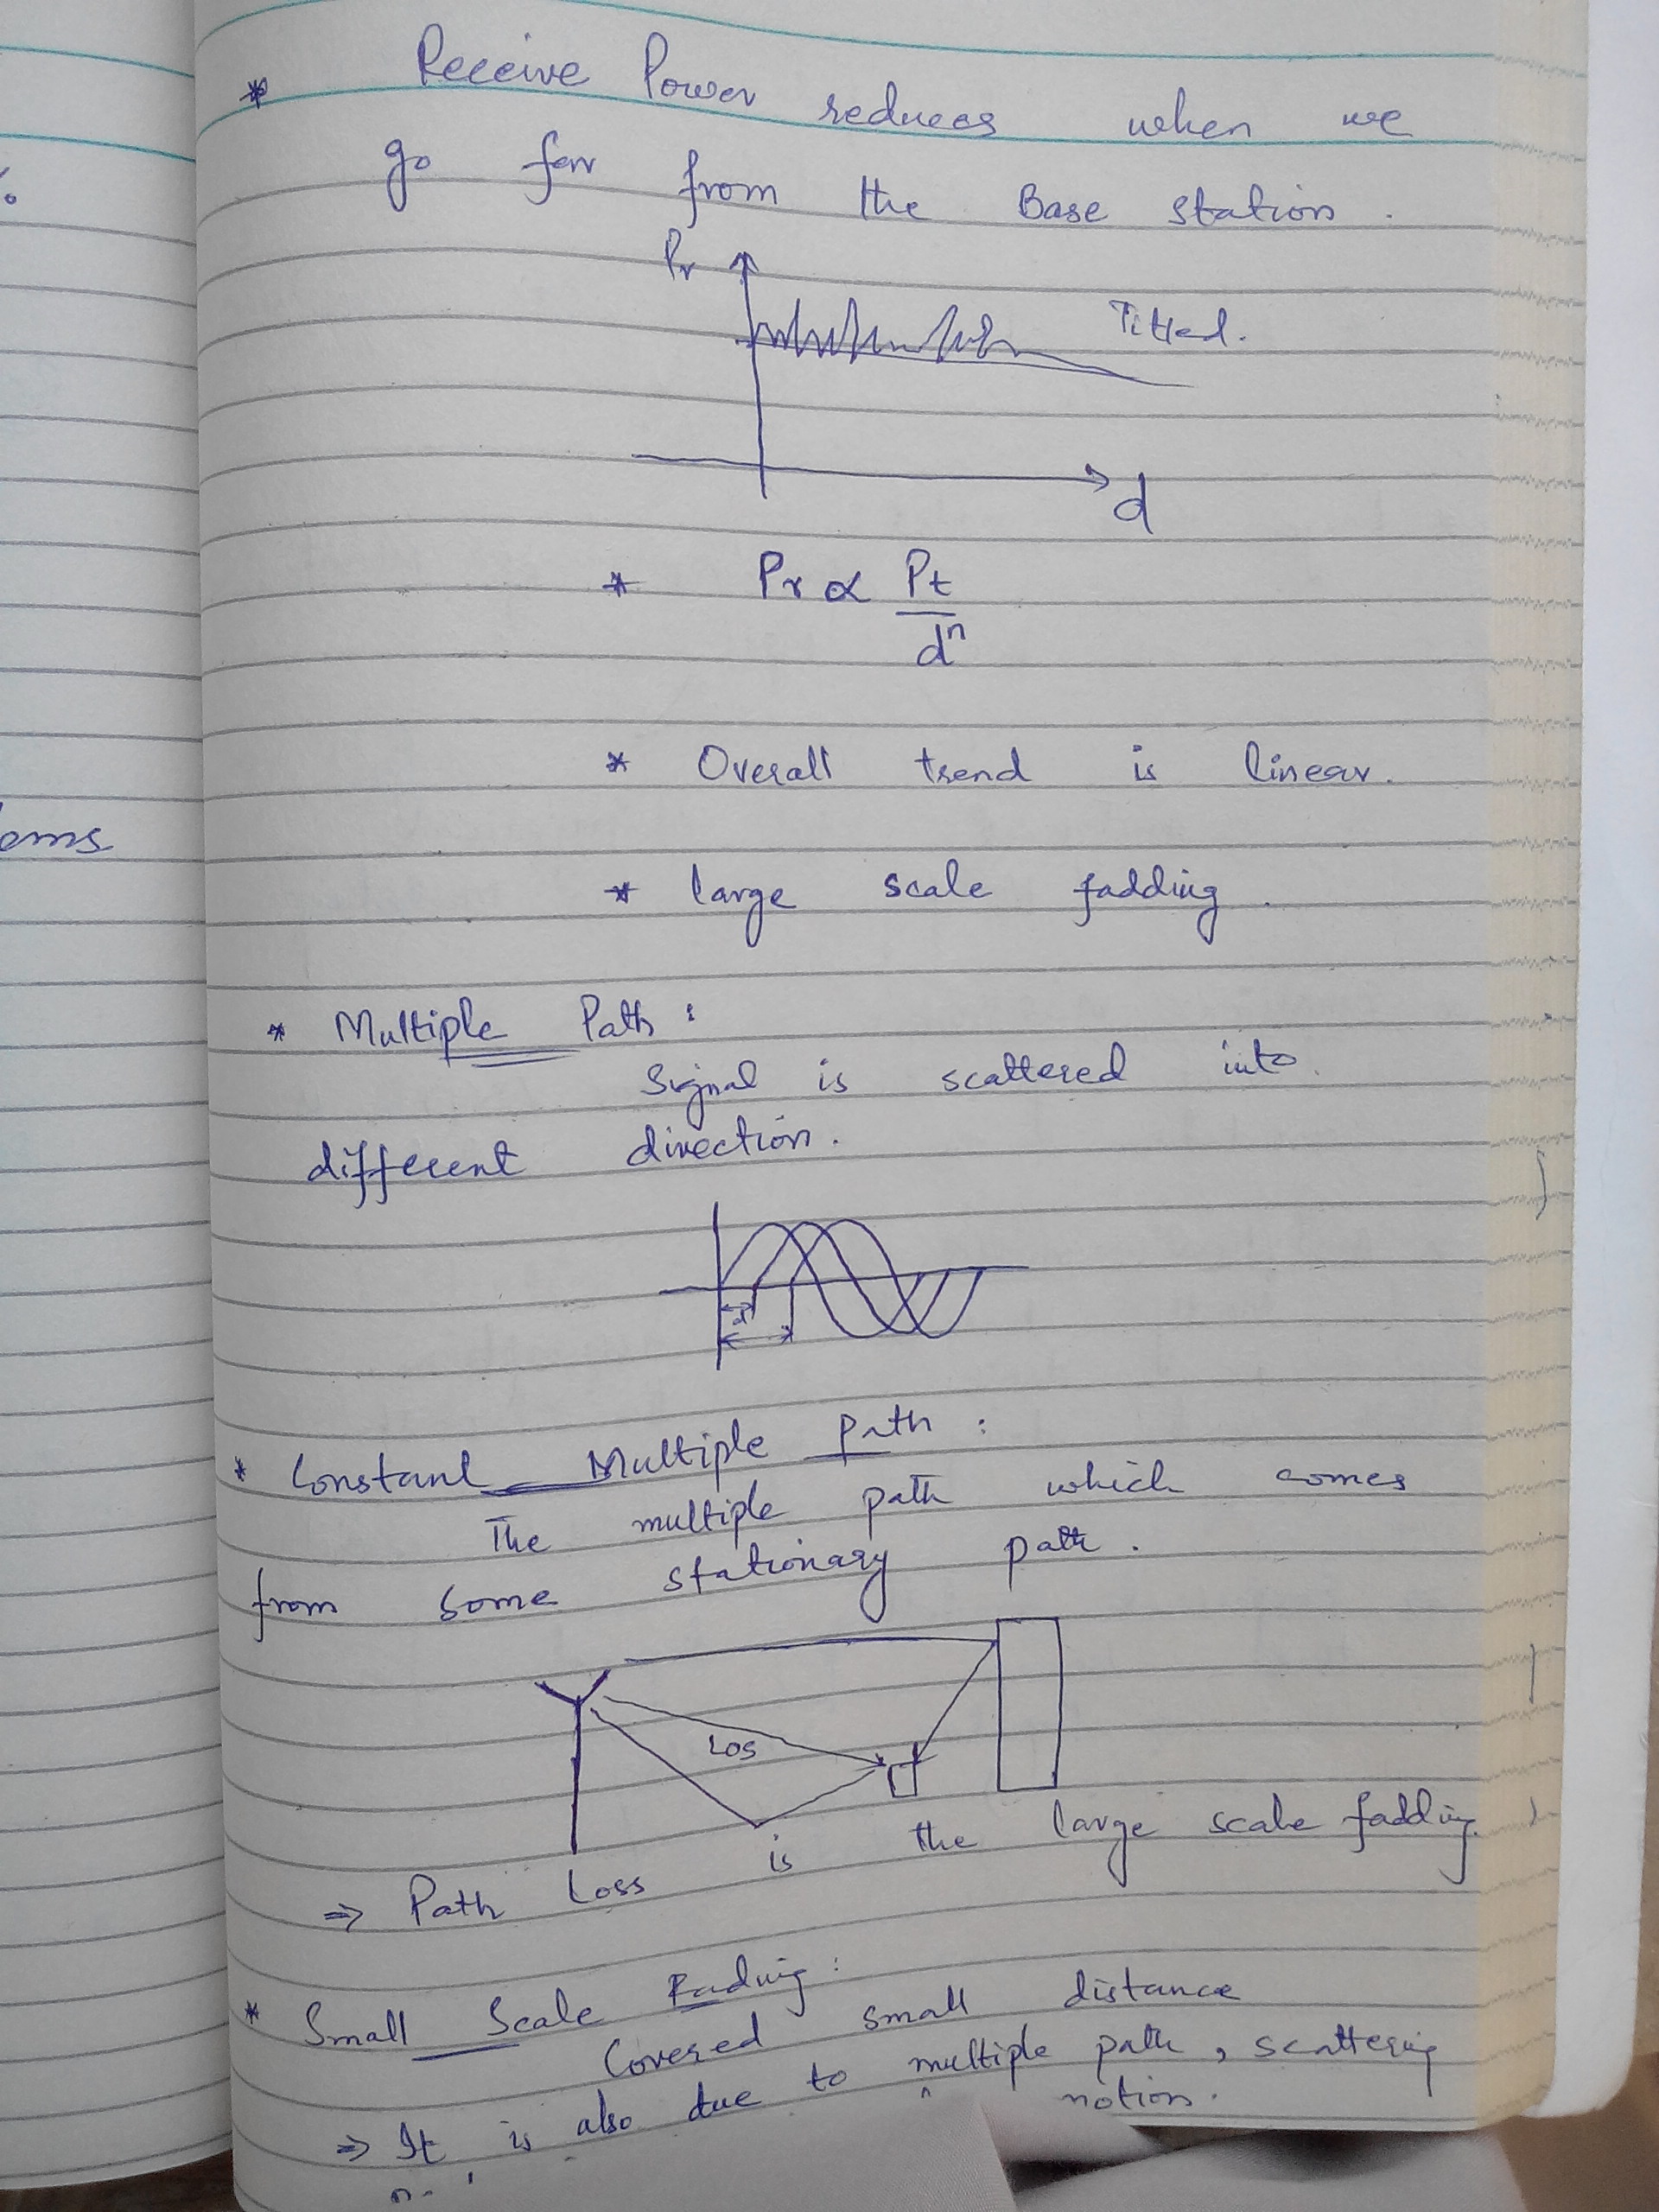 * Receive Power reduces when we
go far from the Base station.
Pr
Titled.
d
* Pr ∝ Pt
dⁿ
* Overall trend is linear.
* large scale fadding.
* Multiple Path:
Signal is scattered into
different direction.
d
* Constant Multiple Path:
The multiple path which comes
from some stationary path.
LOS
⇒ Path Loss is the large scale fadding.
* Small Scale Fading:
Covered small distance
⇒ It is also due to multiple path, scattering
motion.
ems